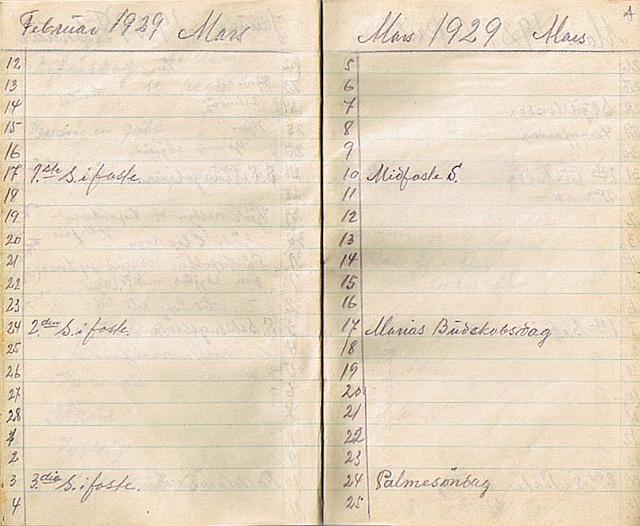 Februar 1929 Mars
12
13
14
15
16
17 1.ste S. i faste.
18
19
20
21
22
23
24 2.den S. i faste.
25
26
27
28
1
2
3 3.die S. i faste.
4
Mars 1929 Mars
5
6
7
8
9
10 Midfaste S.
11
12
13
14
15
16
17 Marias Budskabsdag
18
19
20
21
22
23
24 Palmesöndag
25